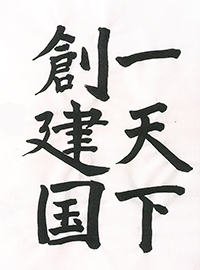 一天下
創建国